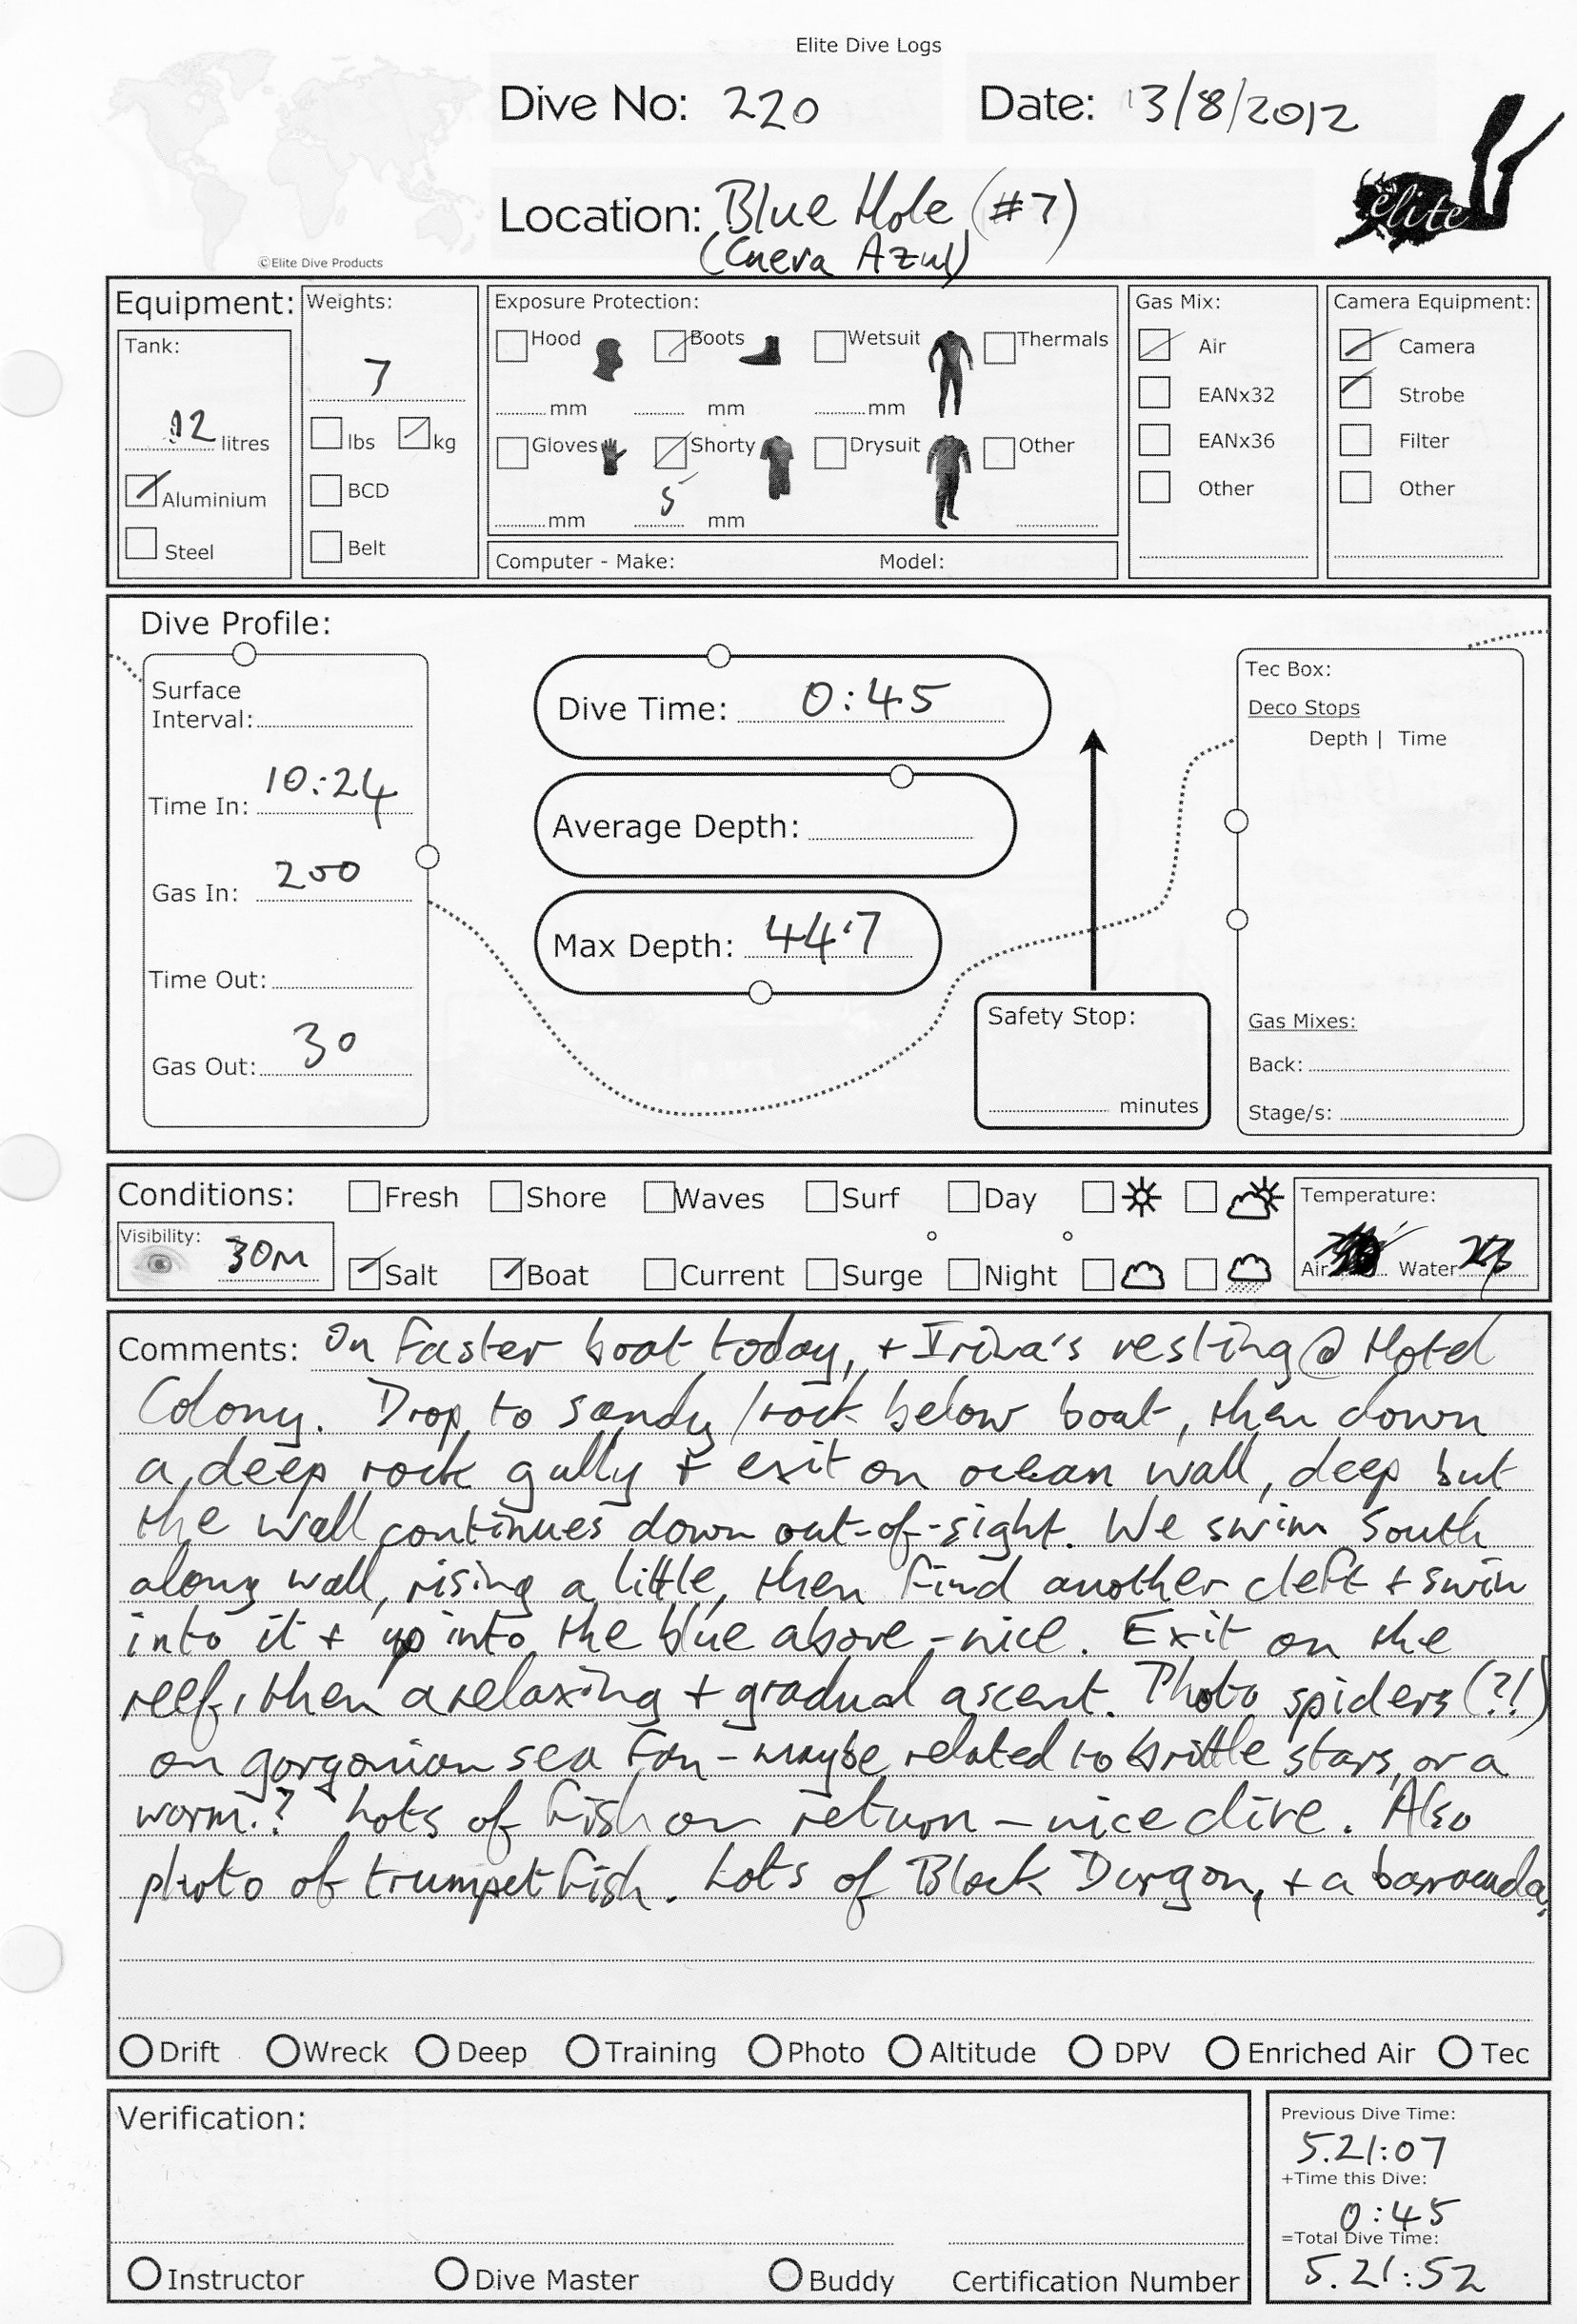 Elite Dive Logs
Dive No: 220 Date: 13/8/2012
Location: Blue Hole (#7)
(Cueva Azul)
elite
©Elite Dive Products
Equipment: Weights: Exposure Protection: Gas Mix: Camera Equipment:
Tank: Hood Boots Wetsuit Thermals Air Camera
7
mm mm mm EANx32 Strobe
12 litres lbs kg Gloves Shorty Drysuit Other EANx36 Filter
Aluminium BCD 5 Other Other
mm mm
Steel Belt Computer - Make: Model:
Dive Profile:
Surface
Interval:
Time In: 10:24
Gas In: 200
Time Out:
Gas Out: 30
Dive Time: 0:45
Average Depth:
Max Depth: 44.7
Safety Stop:
minutes
Tec Box:
Deco Stops
Depth | Time
Gas Mixes:
Back:
Stage/s:
Conditions: Fresh Shore Waves Surf Day Temperature:
Visibility: 30m Salt Boat Current Surge Night Air Water
Comments: On faster boat today, + Irina's resting @ Hotel
Colony. Drop to sandy/rock below boat, then down
a deep rock gully + exit on ocean wall, deep but
the wall continues down out-of-sight. We swim South
along wall, rising a little, then find another cleft + swim
into it + up into the blue above - nice. Exit on the
reef, then a relaxing + gradual ascent. Photo spiders (?!)
on gorgonian sea fan - maybe related to brittle stars, or a
worm.? Lots of fish on return - nice dive. Also
photo of trumpetfish. Lots of Black Durgon, + a barracuda.
Drift Wreck Deep Training Photo Altitude DPV Enriched Air Tec
Verification:
Instructor Dive Master Buddy Certification Number
Previous Dive Time:
5.21:07
+Time this Dive:
0:45
=Total Dive Time:
5.21:52